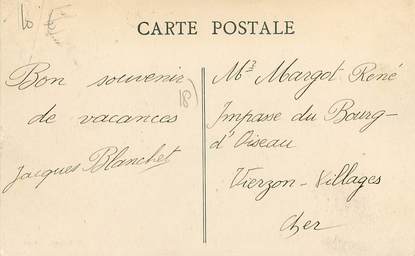 CARTE POSTALE
Bon souvenir
de vacances
Jacques Blanchet
18
Mr Margot René
Impasse du Bourg-
d'Oiseau
Vierzon-Villages
Cher